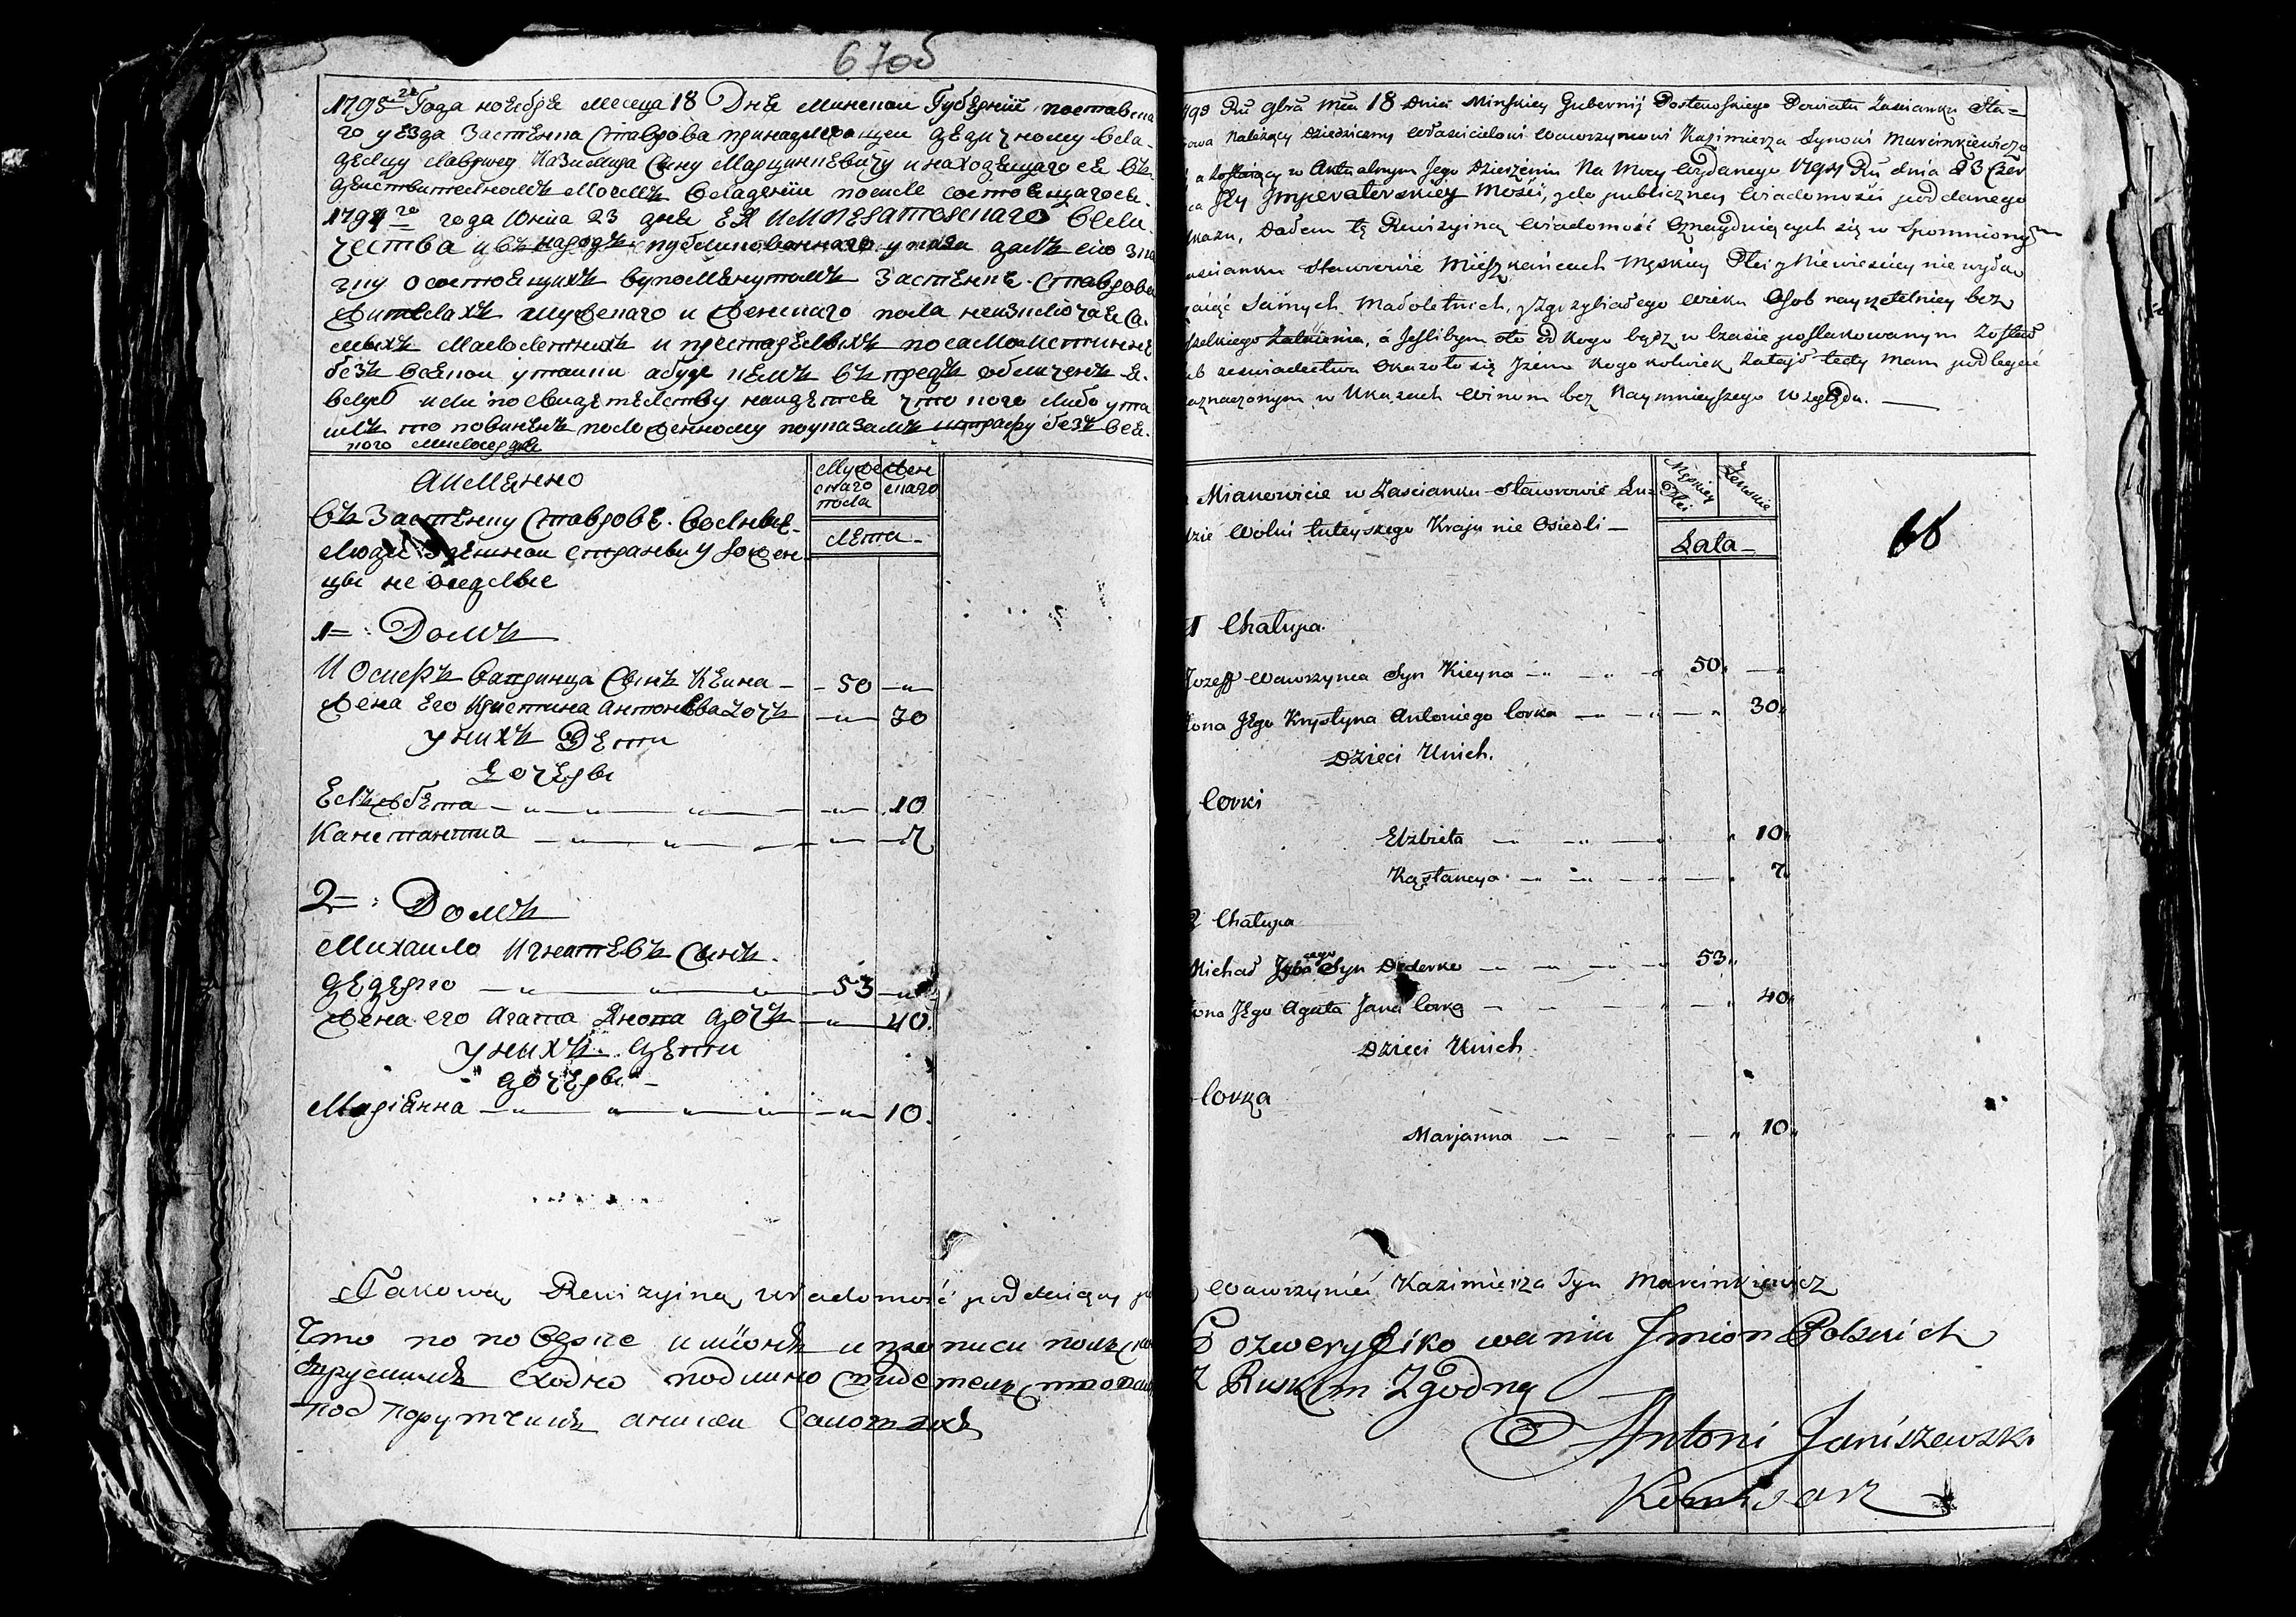 67об
1795го Года ноебре месеца 18 Дне минскои Губернии поставска
го уезда Застенка Ставрова принадлежащеи дедичному вла-
делцу Лаврыну Казимира Сыну Марцинкевичу и находещагосе въ
действителномъ моемъ владении после состоевщагосе
1794го года Юниа 23 дне ЕЯ ИМПЕРАТОРСКАГО Вели
чества и въ народъ публикованнаго указа далъ сию зка
зку о состоещихъ вупоменутомъ Застенке Ставрове
жителахъ мужескаго и женскаго пола неизключае са
мыхъ малолетнихъ и престарелыхъ посамои истинне
безъ всекои утаики абуде кемъ въ предь обличенъ я
влусь или по свидетелству наидетсе что кого либо ута
илъ то повиненъ положенному поуказамъ штрафу безъ всe
кого милосердие
Аименно
Мужескаго пола
Женскаго
лета
въ Застенку Ставрове Волные
люди Здешнои стораны уроженцы
не оседлые
1 = Домъ
Иосифъ Вавринца Сынъ Кеина 50
Жена Его Кристина Антонева дочъ 30
У нихъ Дети
Дочеры
Елжбета 10
Канстантиа 7
2 = Домъ
Михаило Игнатевъ Сынъ
Дедерко 53
Жена его Агата Янова дочъ 40
У нихъ дети
дочеры
Мариянна 10
Takową Rewizyiną wiadomość podemną
Что по поверке имионъ и прописи полскои
зрускимъ сходно подлино свидетелствовалъ
Подпорутчикъ
Rũ 9bra Mca 18 Dnia Minskiey Gubernij Postawskiego Powiatu Zascianku Sta=
Należący Dziedziczny Własicielowi Wawrzyncowi Kazimierza Synowi Marcinkiewiczo
a zostaiący w Aktualnym Jego Dzierżeniu Na Mocy Wydanego 1794 Rũ dnia 23 Czer
Jey Imperatorskiey Mości, y do publiczney wiadomości poddanego
Ukazu, Dałem tę Rewizyiną Wiadomość o znaydujących się w Spomnionym
Zascianku Stawrowie Mieszkańcach Męskiey Płci y Niewiesciey nie wyłą
czaiąc Samych Małoletnich, y Zgrzybiałego wieku Osob nayrzetelniey bez
wszelkiego Zataienia, á Jeslibym oto od kogo bądz w Czasie poszlakowanym Został
lub zeswiadectwa okazało się Jżem kogo kolwiek Zataił tedy Mam podlegać
naznaczonym w Ukazach Winom bez Naymnieyszego Względu.
Mianowicie w Zascianku Stawrowie Lu=
dzie Wolni tuteyszego Kraju nie Osiedli
Męskiey Płci
Żenskiey
Lata
68
1 Chałupa
Jozeff Wawrzynca Syn Kieyna 50
Żona Jego Krystyna Antoniego Corka 30
Dzieci Unich.
Corki
Elzbieta 10
Kąstancya 7
2 Chałupa
Michał Syn Dederko 53
Żona Jego Agata Jana Corka 40
Dzieci Unich
Corka
Marjanna 10
Wawrzyniec Kazimierza Syn Marcinkiewicz
Po zweryfikowaniu Jmion Polskich
Z Ruskim Zgodną
Antoni Janiszewski
Komisarz